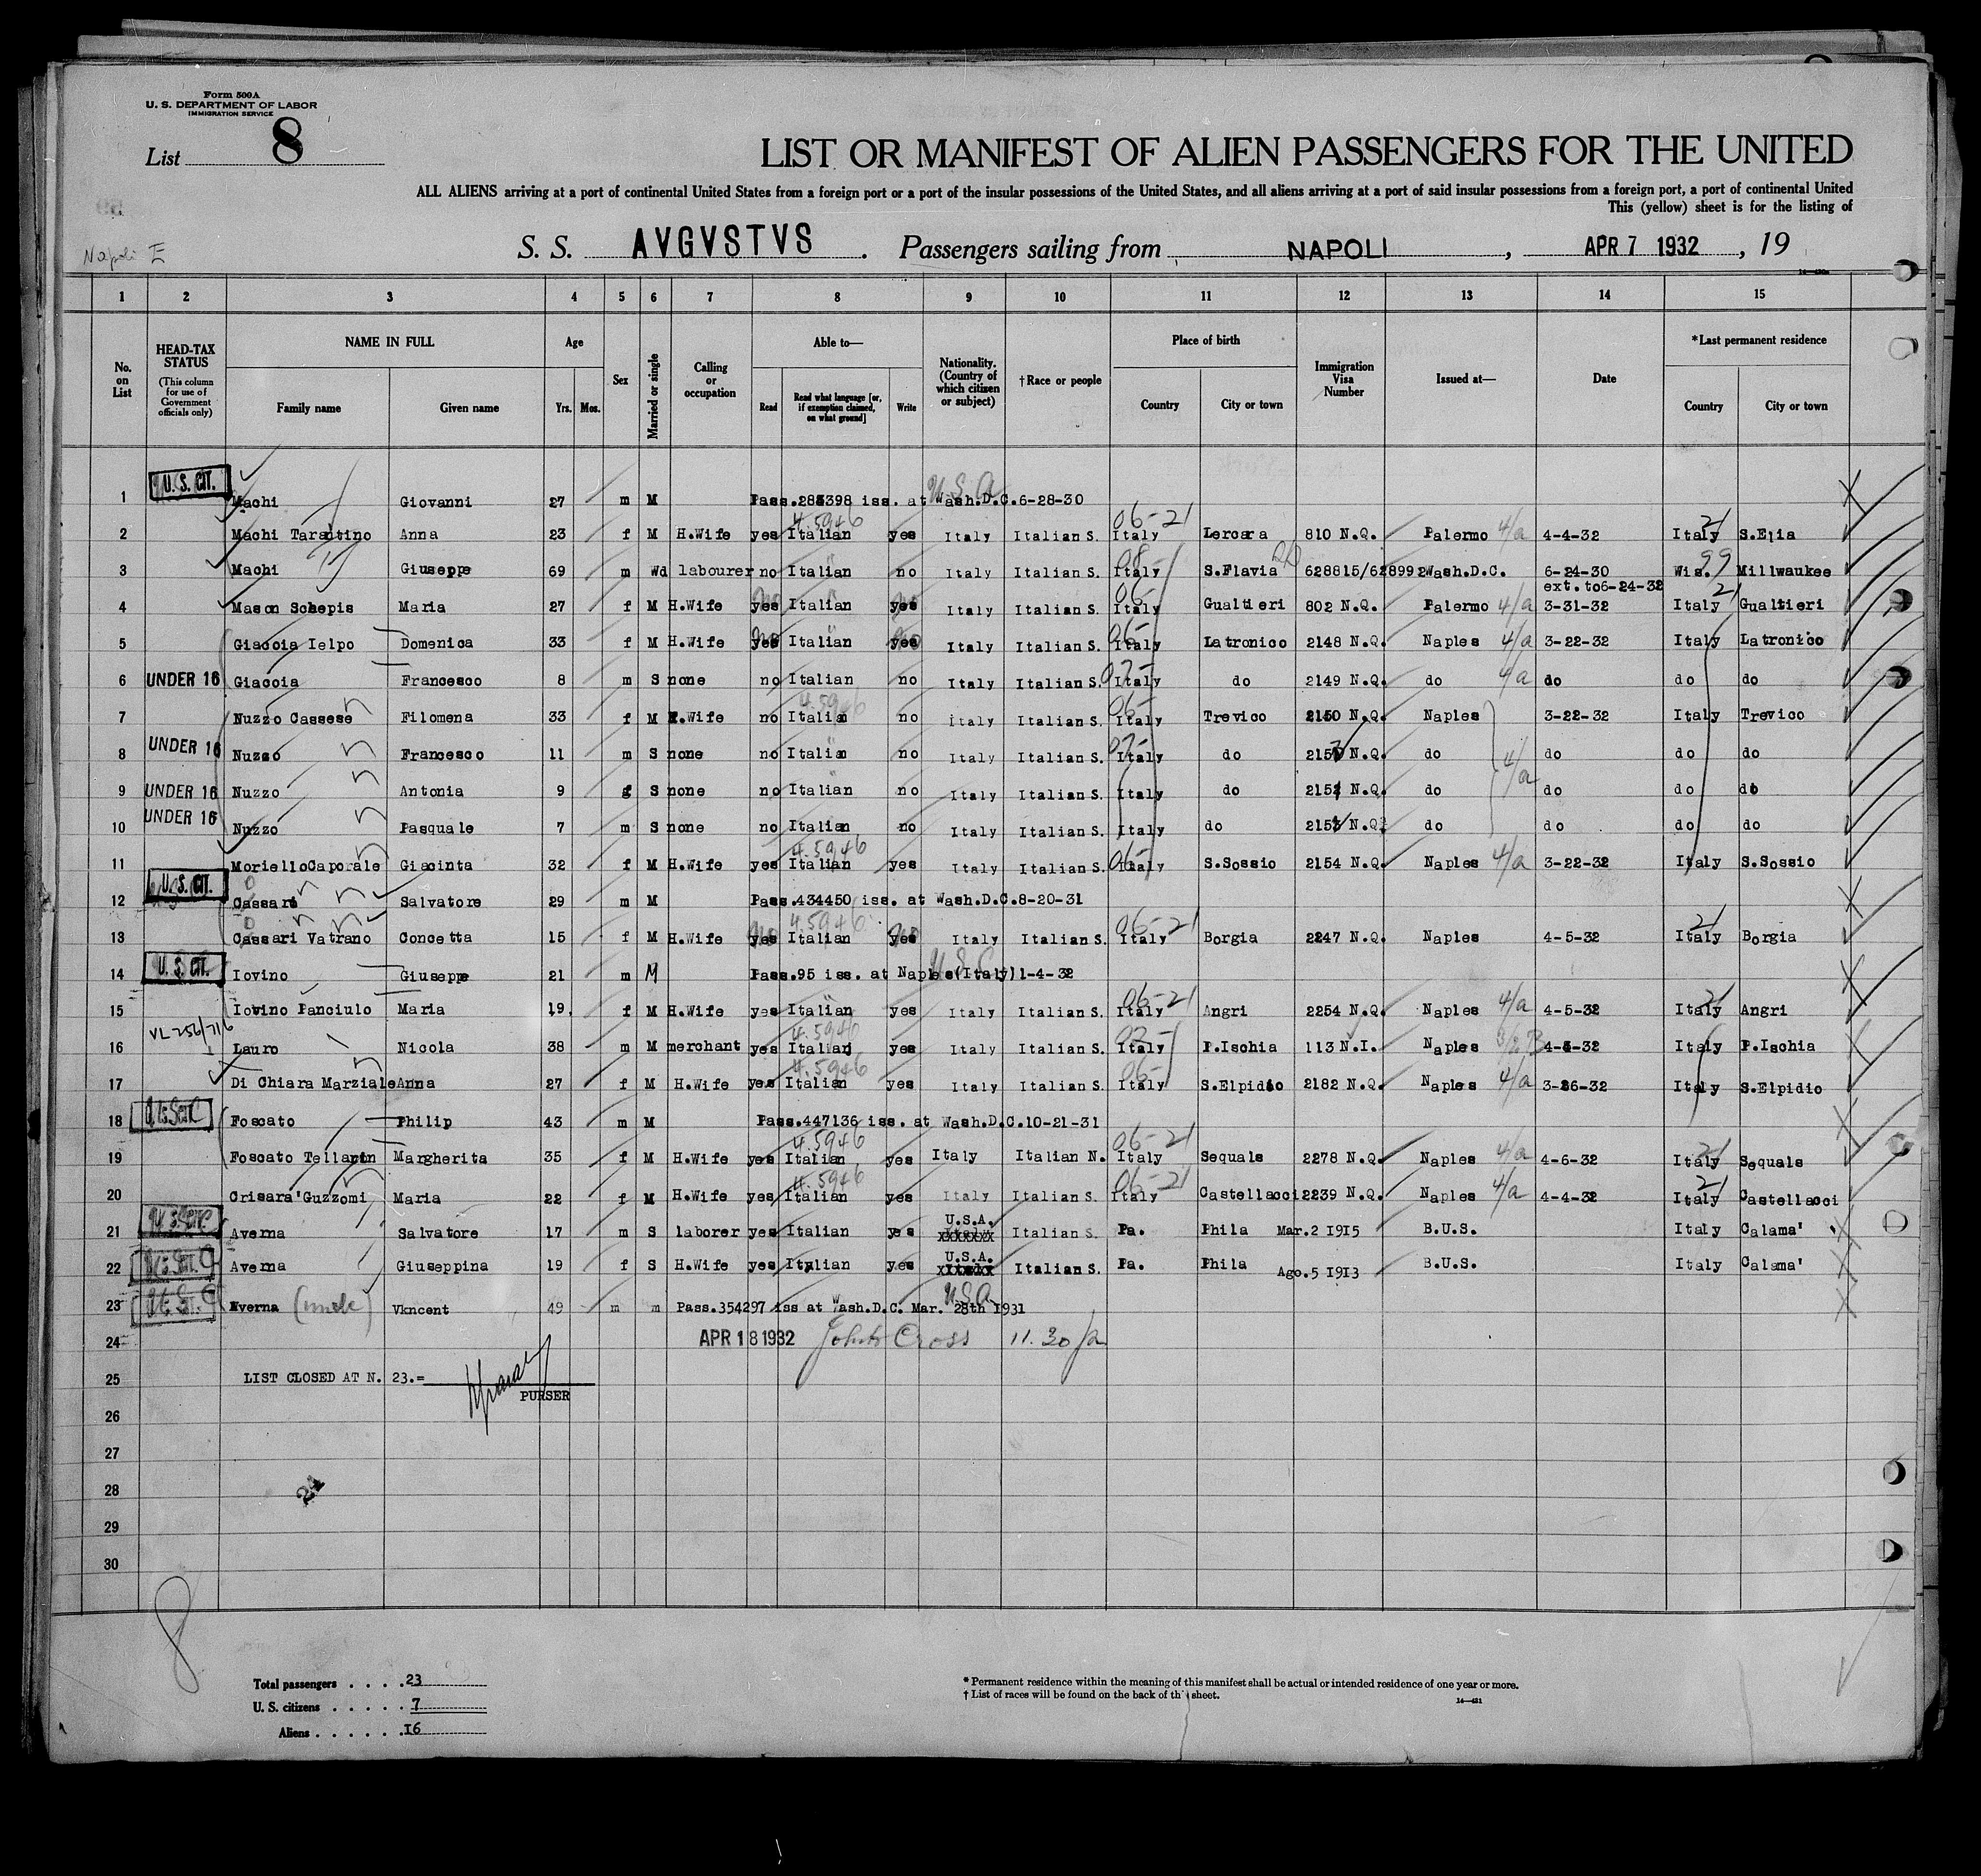 Form 500A
U. S. DEPARTMENT OF LABOR
IMMIGRATION SERVICE
List 8
LIST OR MANIFEST OF ALIEN PASSENGERS FOR THE UNITED
ALL ALIENS arriving at a port of continental United States from a foreign port or a port of the insular possessions of the United States, and all aliens arriving at a port of said insular possessions from a foreign port, a port of continental United
This (yellow) sheet is for the listing of
Napoli E
S. S. AVGVSTVS. Passengers sailing from NAPOLI, APR 7 1932, 19
1 2 3 4 5 6 7 8 9 10 11 12 13 14 15
No. on List
HEAD-TAX STATUS (This column for use of Government officials only)
NAME IN FULL Family name Given name
Age Yrs. Mos.
Sex
Married or single
Calling or occupation
Able to— Read Read what language [or, if exemption claimed, on what ground] Write
Nationality. (Country of which citizen or subject)
†Race or people
Place of birth Country City or town
Immigration Visa Number
Issued at—
Date
*Last permanent residence Country City or town
1 U.S. CIT. Machi Giovanni 27 m M Pass.285398 iss. at Wash.D.C.6-28-30 U.S.A
2 Machi Tarantino Anna 23 f M H.Wife yes Italian yes Italy Italian S. Italy Lercara 810 N.Q. Palermo 4/a 4-4-32 Italy S.Elia
3 Machi Giuseppe 69 m Wd labourer no Italian no Italy Italian S. Italy S.Flavia 628815/628992 Wash.D.C. 6-24-30 ext.to6-24-32 Wis. Millwaukee
4 Mason Schepis Maria 27 f M H.Wife yes Italian yes Italy Italian S. Italy Gualtieri 802 N.Q. Palermo 4/a 3-31-32 Italy Gualtieri
5 Giaccia Ielpo Domenica 33 f M H.Wife yes Italian yes Italy Italian S. Italy Latronico 2148 N.Q. Naples 4/a 3-22-32 Italy Latronico
6 UNDER 16 Giaccia Francesco 8 m S none no Italian no Italy Italian S. Italy do 2149 N.Q. do 4/a do do do
7 Nuzzo Cassese Filomena 33 f M H.Wife no Italian no Italy Italian S. Italy Trevico 2150 N.Q. Naples 3-22-32 Italy Trevico
8 UNDER 16 Nuzzo Francesco 11 m S none no Italian no Italy Italian S. Italy do N.Q. do 4/a do do do
9 UNDER 16 Nuzzo Antonia 9 S none no Italian no Italy Italian S. Italy do N.Q. do do do do
10 UNDER 16 Nuzzo Pasquale 7 m S none no Italian no Italy Italian S. Italy do N.Q. do do do do
11 Moriello Caporale Giacinta 32 f M H.Wife yes Italian yes Italy Italian S. Italy S.Sossio 2154 N.Q. Naples 4/a 3-22-32 Italy S.Sossio
12 U.S. CIT. Cassaro Salvatore 29 m M Pass.434450 iss. at Wash.D.C.8-20-31
13 Cassari Vatrano Concetta 15 f M H.Wife yes Italian yes Italy Italian S. Italy Borgia 2247 N.Q. Naples 4-5-32 Italy Borgia
14 U.S. CIT. Iovino Giuseppe 21 m M Pass.95 iss. at Naples(Italy)1-4-32
15 Iovino Panciulo Maria 19 f M H.Wife yes Italian yes Italy Italian S. Italy Angri 2254 N.Q. Naples 4/a 4-5-32 Italy Angri
16 VL-256/716 Lauro Nicola 38 m M merchant yes Italian yes Italy Italian S. Italy P.Ischia 113 N.I. Naples Italy P.Ischia
17 Di Chiara Marziale Anna 27 f M H.Wife yes Italian yes Italy Italian S. Italy S.Elpidio 2182 N.Q. Naples 4/a 3-26-32 Italy S.Elpidio
18 Foscato Philip 43 m M Pass.447136 iss. at Wash.D.C.10-21-31
19 Foscato Margherita 35 f M H.Wife yes Italian yes Italy Italian N. Italy Sequals 2278 N.Q. Naples 4/a 4-6-32 Italy Sequals
20 Crisara'Guzzomi Maria 22 f M H.Wife yes Italian yes Italy Italian S. Italy Castellacci 2239 N.Q. Naples 4/a 4-4-32 Italy Castellacci
21 Averna Salvatore 17 m S laborer yes Italian yes U.S.A. Italian S. Pa. Phila Mar.2 1915 B.U.S. Italy Calama'
22 Averna Giuseppina 19 f S H.Wife yes Italian yes U.S.A. Italian S. Pa. Phila Ago.5 1913 B.U.S. Italy Calama'
23 Averna (uncle) Vkncent 49 m m Pass.354297 iss at Wash.D.C. Mar. 28th 1931 U.S.A
24 APR 18 1932 John Cross 11.30
25 LIST CLOSED AT N. 23.=
PURSER
26
27
28
24
29
30
8
Total passengers . . . . 23
U. S. citizens . . . . . 7
Aliens . . . . . . 16
* Permanent residence within the meaning of this manifest shall be actual or intended residence of one year or more.
† List of races will be found on the back of this sheet.
14—421